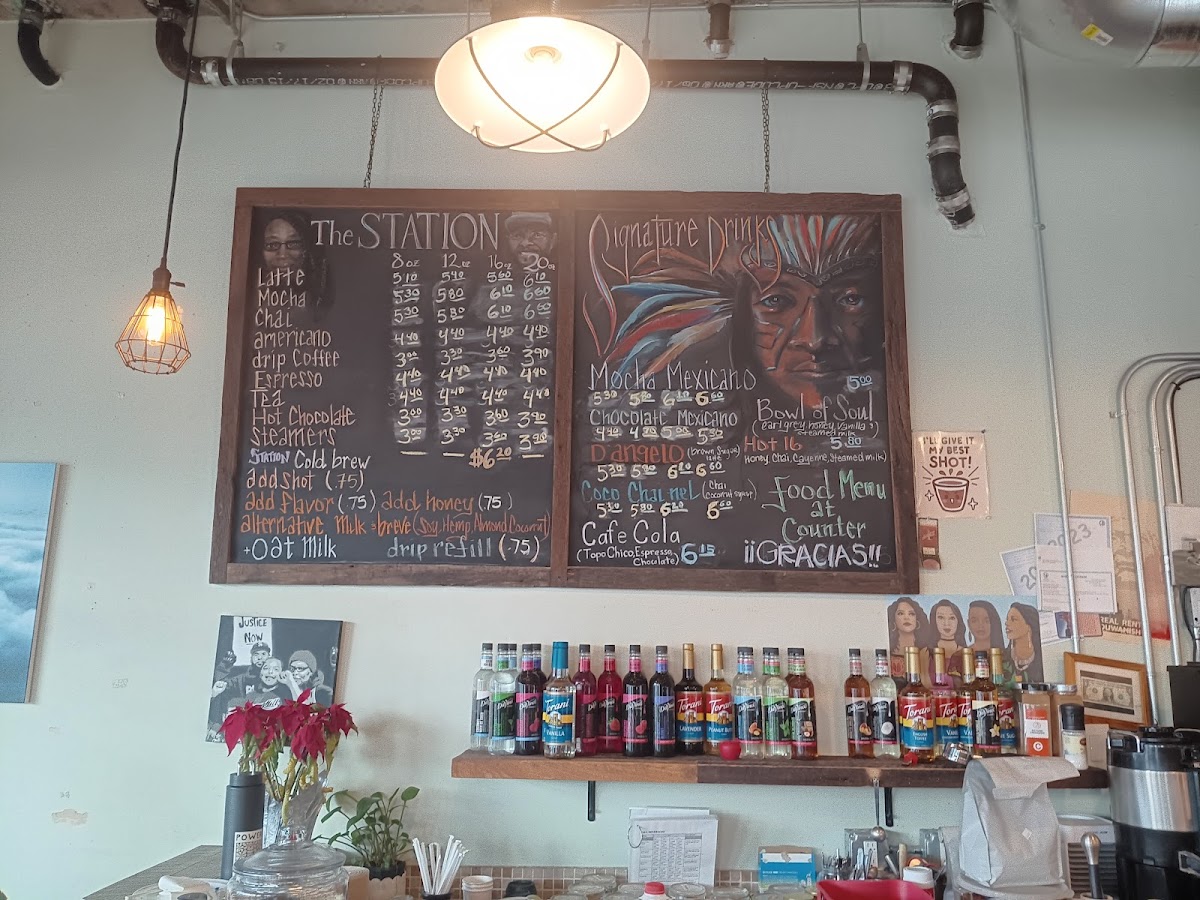 The STATION
8 oz 12 oz 16 oz 20 oz
Latte 5.10 5.40 5.60 6.10
Mocha 5.30 5.80 6.10 6.60
Chai 5.30 5.80 6.10 6.60
americano 4.40 4.40 4.40 4.40
drip Coffee 3.00 3.30 3.60 3.90
Espresso 4.40 4.40 4.40 4.40
Tea 4.40 4.40 4.40 4.40
Hot Chocolate 3.00 3.30 3.60 3.90
Steamers 3.00 3.30 3.60 3.90
STATION Cold brew $6.20
add shot (.75)
add flavor (.75) add honey (.75)
alternative milk + breve (Soy, Hemp, Almond, Coconut)
+Oat Milk drip refill (.75)
Signature Drinks
Mocha Mexicano
5.30 5.80 6.10 6.60
Chocolate Mexicano
4.40 4.70 5.00 5.30
D'angelo (brown sugar latte)
5.30 5.80 6.20 6.60
Coco Chai nel (Chai Coconut syrup)
5.30 5.80 6.20 6.60
Cafe Cola
(Topo Chico, Espresso, Chocolate) 6.15
5.00
Bowl of Soul
(earl grey, honey, Vanilla, steamed milk)
Hot 16 5.80
Honey, Chai, Cayenne, Steamed milk)
Food Menu
at
Counter
¡¡GRACIAS!!
I'LL GIVE IT
MY BEST
SHOT!
2023
JUSTICE
NOW
Torani
VANILLA
Torani
LAVENDER
Torani
PEANUT BUTTER
Torani
Torani
Torani
REAL RENT
DUWAMISH